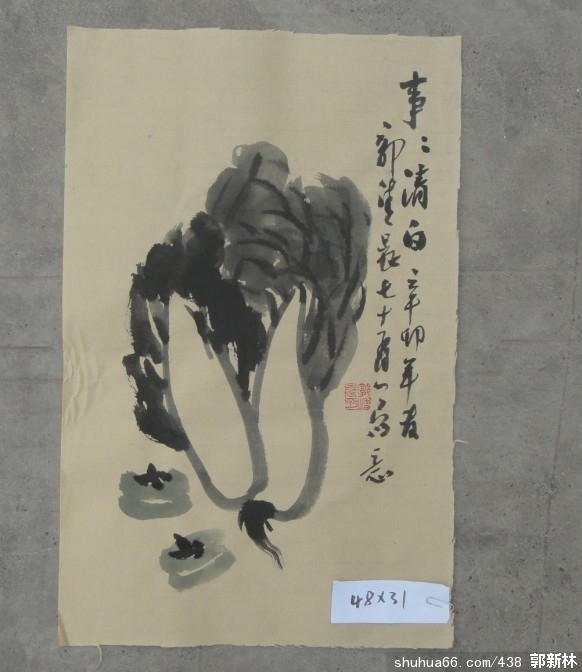 事〻清白 辛卯年春
郭 七十 写意
48x31
shuhua66.com/438 郭新林